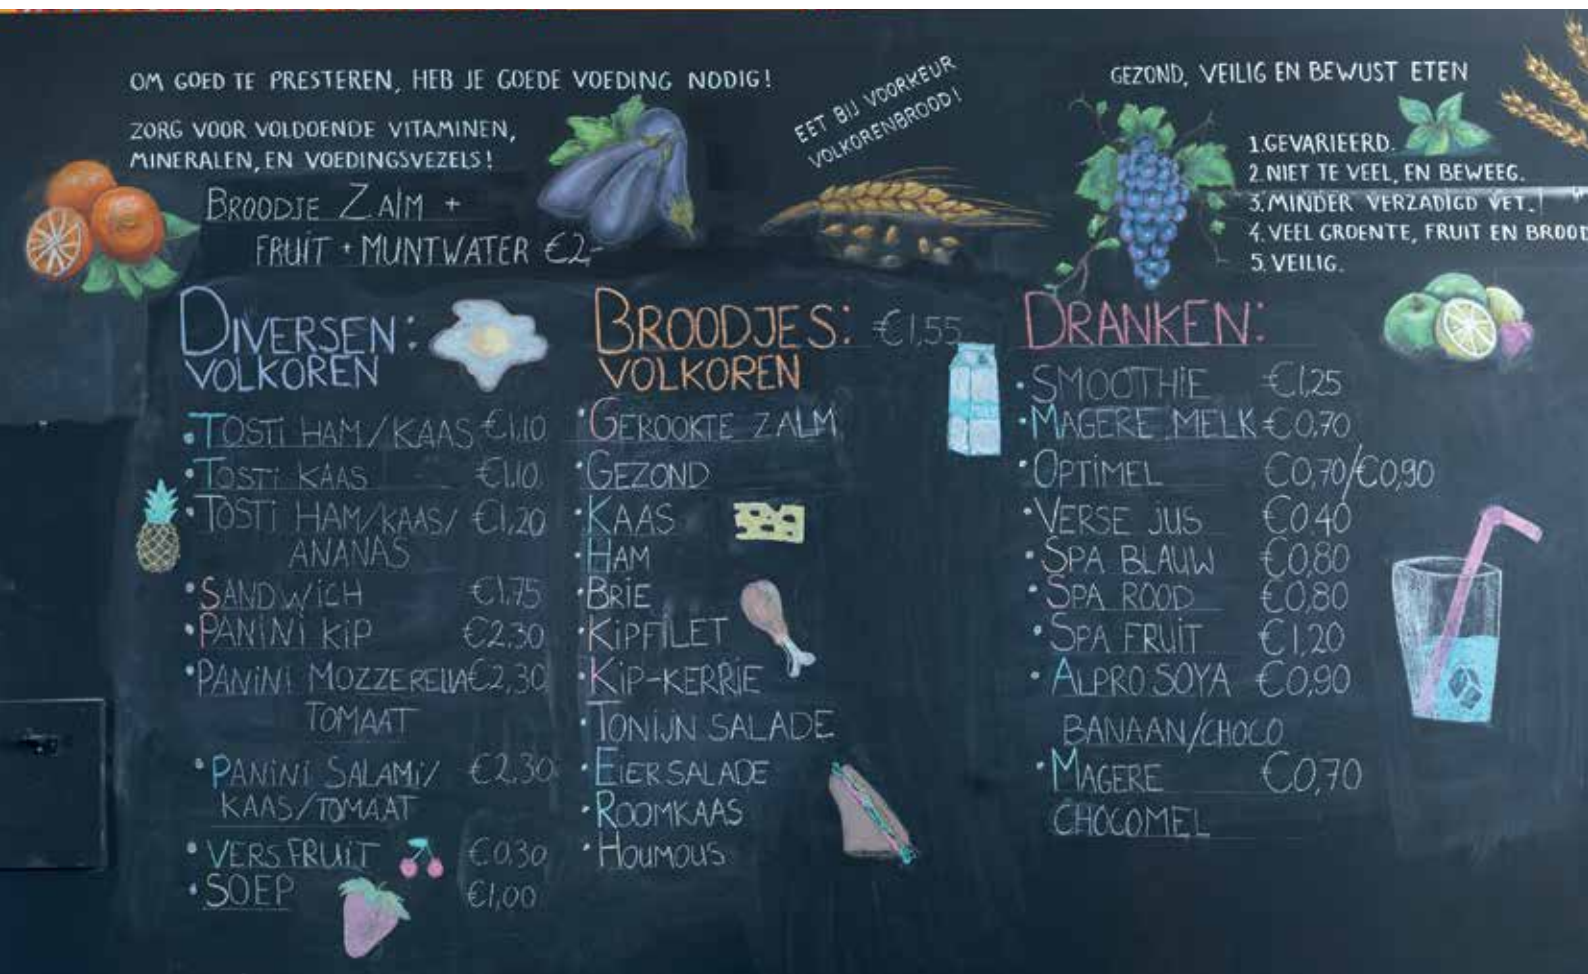 OM GOED TE PRESTEREN, HEB JE GOEDE VOEDING NODIG!
ZORG VOOR VOLDOENDE VITAMINEN,
MINERALEN, EN VOEDINGSVEZELS!
BROODJE ZALM +
FRUIT + MUNTWATER €2,-
EET BIJ VOORKEUR
VOLKORENBROOD!
GEZOND, VEILIG EN BEWUST ETEN
1. GEVARIEERD.
2. NIET TE VEEL, EN BEWEEG.
3. MINDER VERZADIGD VET.
4. VEEL GROENTE, FRUIT EN BROOD
5. VEILIG.
DIVERSEN:
VOLKOREN
• TOSTI HAM/KAAS €1,10
• TOSTI KAAS €1,10
• TOSTI HAM/KAAS/ €1,20
ANANAS
• SANDWICH €1,75
• PANINI KIP €2,30
• PANINI MOZZERELLA €2,30
TOMAAT
• PANINI SALAMI/ €2,30
KAAS/TOMAAT
• VERS FRUIT €0.30
• SOEP €1,00
BROODJES: €1,55
VOLKOREN
• GEROOKTE ZALM
• GEZOND
• KAAS
• HAM
• BRIE
• KIPFILET
• KIP-KERRIE
• TONIJN SALADE
• EIERSALADE
• ROOMKAAS
• HOUMOUS
DRANKEN:
• SMOOTHIE €1,25
• MAGERE MELK €0,70
• OPTIMEL €0,70/€0,90
• VERSE JUS €0.40
• SPA BLAUW €0,80
• SPA ROOD €0,80
• SPA FRUIT €1,20
• ALPRO SOYA €0,90
BANAAN/CHOCO
• MAGERE €0,70
CHOCOMEL